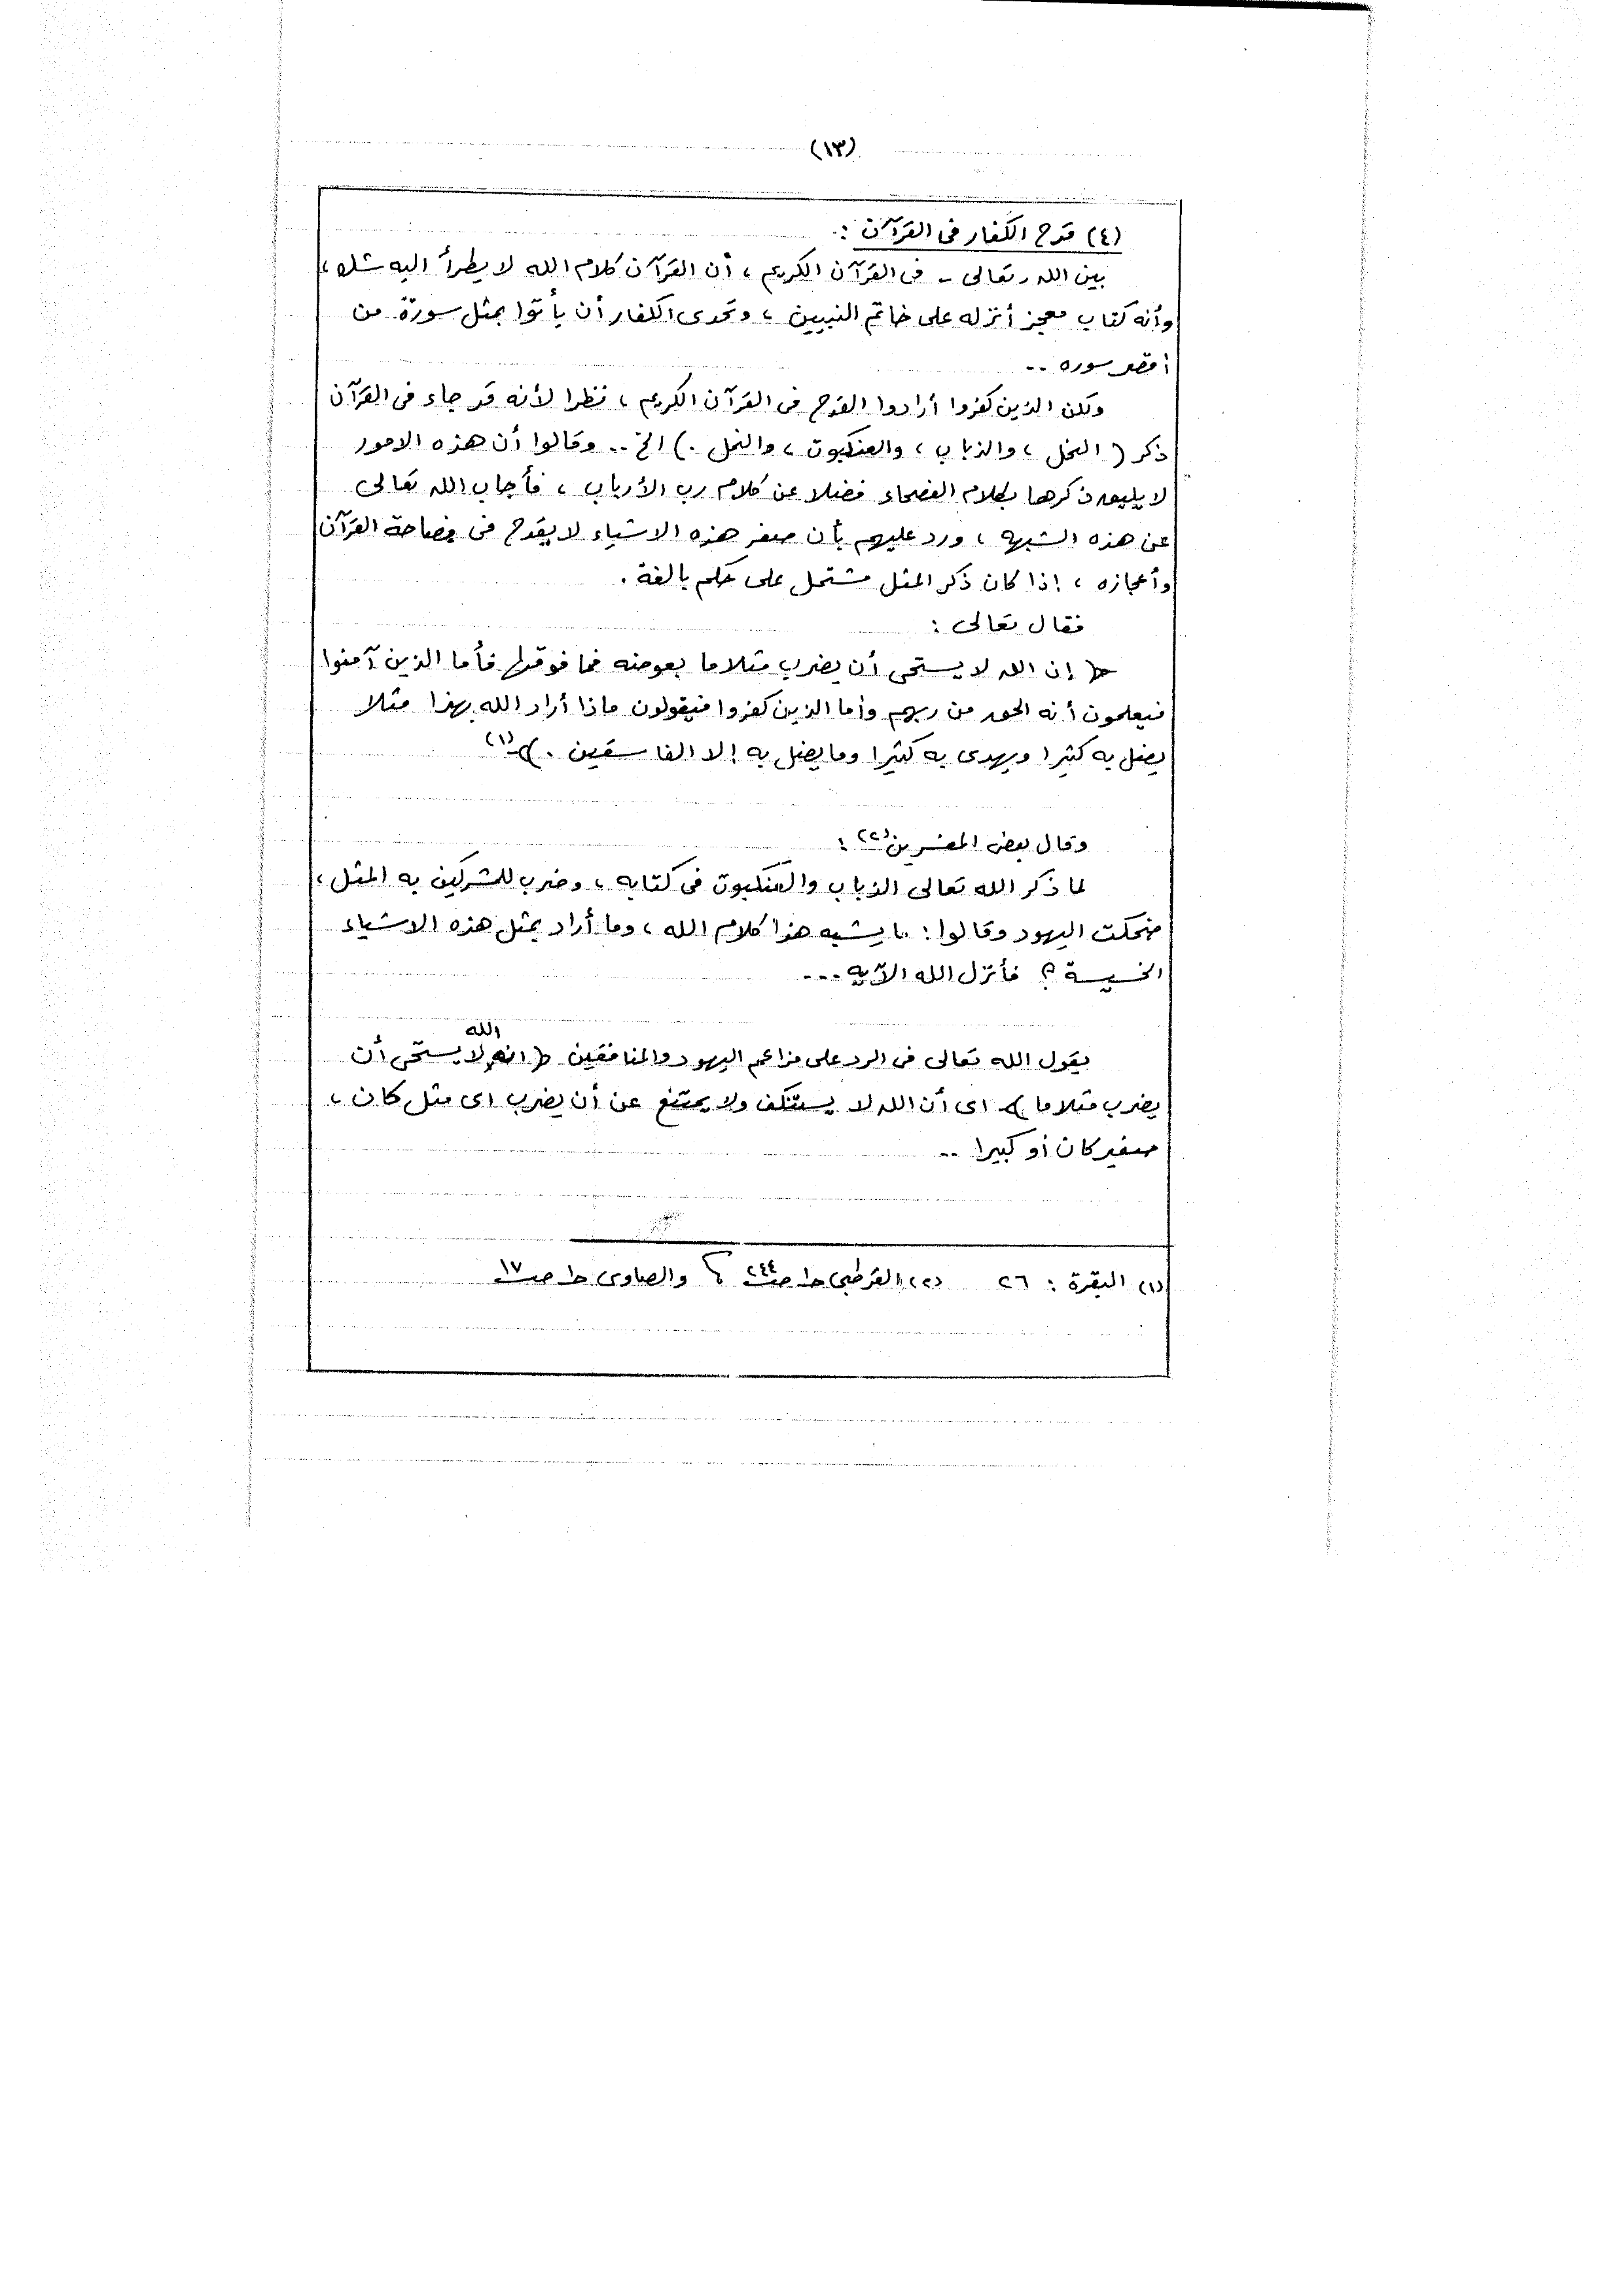 (١٣)
(٤) قدح الكفار فى القرآن :
بين الله - تعالى - فى القرآن الكريم ، أن القرآن كلام الله لا يطرأ اليه شك ،
وأنه كتاب معجز أنزله على خاتم النبيين ، وتحدى الكفار أن يأتوا بمثل سورة من
أقصر سوره ..
ولكن الذين كفروا أرادوا القدح فى القرآن الكريم ، نظرا لأنه قد جاء فى القرآن
ذكر ( النحل ، والذباب ، والعنكبوت ، والنمل . ) الخ .. وقالوا أن هذه الامور
لا يليق ذكرها بكلام الفصحاء فضلا عن كلام رب الأرباب ، فأجاب الله تعالى
عن هذه الشبهه ، ورد عليهم بأن صغر هذه الاشياء لا يقدح فى فصاحة القرآن
وأعجازه ، إذا كان ذكر المثل مشتمل على حكم بالغة .
فقال تعالى :
﴿ إن الله لا يستحى أن يضرب مثلا ما بعوضه فما فوقها فأما الذين آمنوا
فيعلمون أنه الحق من ربهم وأما الذين كفروا فيقولون ماذا أراد الله بهذا مثلا
يضل به كثيرا ويهدى به كثيرا وما يضل به إلا الفاسقين . ﴾ (١)
وقال بعض المفسرين (٢) :
لما ذكر الله تعالى الذباب والعنكبوت فى كتابه ، وضرب للمشركين به المثل ،
ضحكت اليهود وقالوا : ما يشبه هذا كلام الله ، وما أراد بمثل هذه الاشياء
الخسيسة ؟ فأنزل الله الآيه ...
يقول الله تعالى فى الرد على مزاعم اليهود والمنافقين ﴿ ان الله لا يستحى أن
يضرب مثلا ما ﴾ اى أن الله لا يستنكف ولا يمتنع عن أن يضرب اى مثل كان ،
صغير كان أو كبيرا ..
(١) البقرة : ٢٦ (٢) القرطبى حـ١ صـ ٢٤٤ ، والصاوى حـ١ صـ ١٧